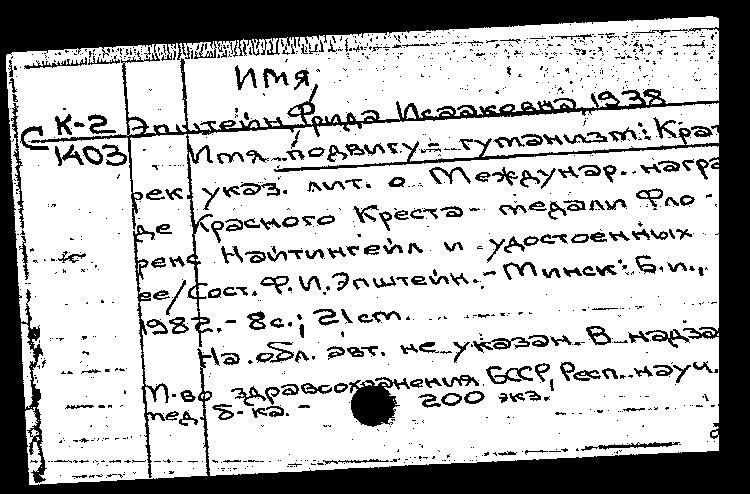 Имя
К-2 Эпштейн, Фрида Исааковна, 1938
С
1403 Имя подвигу - гуманизм: Крат
рек. указ. лит. о Междунар. награ
де Красного Креста - медали Фло-
ренс Найтингейл и удостоенных
ее/Сост. Ф.И.Эпштейн. - Минск: Б.и.,
1982. - 8с.; 21 cm.
На обл. авт. не указан. В надза
М-во здравоохранения БССР, Респ. науч.
мед. б-ка. - 200 экз.